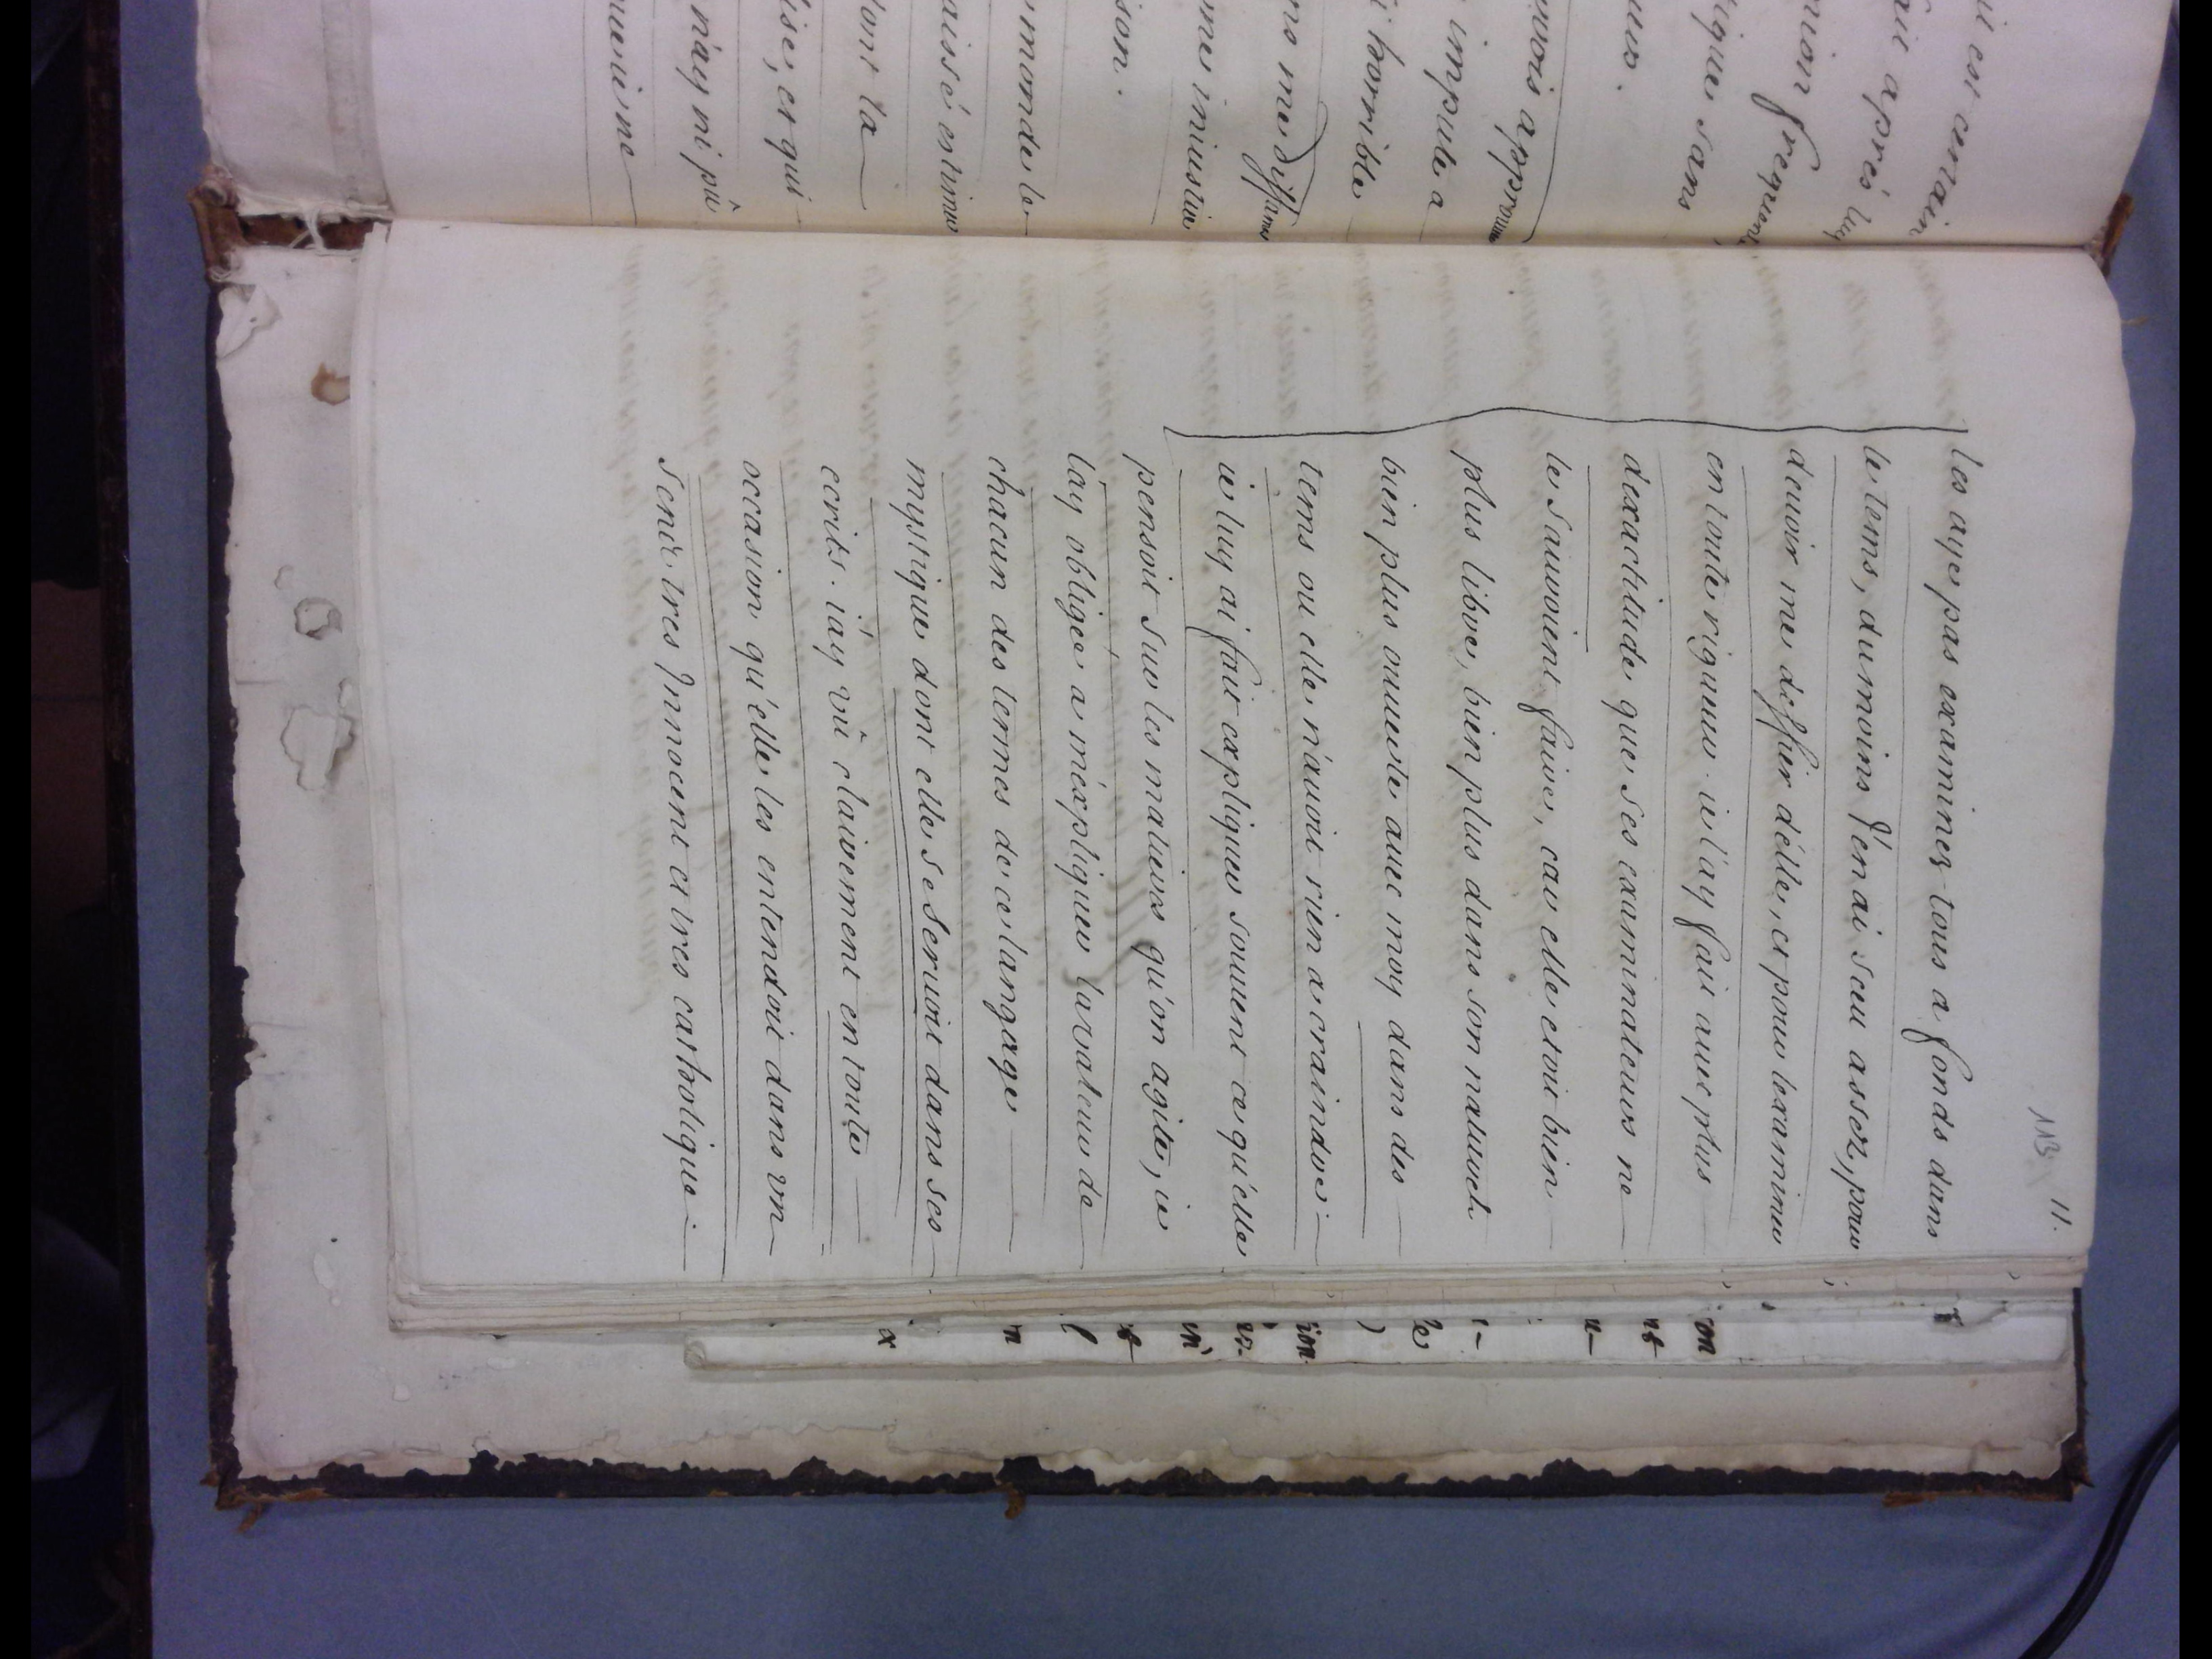 ui est certain
ait après luy
nion frequente
ique sans
eurs.
nnois appro
impute a
i horrible
ns me diffamer
me iniustice
son.
monde le
aissé estimer
dont la
lise, et qui
n'ay ni pû
11.
113
les aye pas examinez tous a fonds dans
le tems, dumoins J'en ai sceu assez, pour
deuoir me deffier d'elle, et pour lexaminer
en toute rigueur. ie l'ay fait auec plus
dexactitude que ses examinateurs ne
le sauroient faire, car elle etoit bien
plus libre, bien plus dans son naturel
bien plus ouuerte auec moy dans des
tems ou elle n'auoit rien a craindre.
ie luy ai fait expliquer souuent ce qu'elle
pensoit sur les matieres qu'on agite, ie
l'ay obligée a m'expliquer la valeur de
chacun des termes de ce langage
mystique dont elle se seruoit dans ses
ecrits. i'ay vû clairement en toute
occasion qu'elle les entendoit dans vn
sens tres Innocent et tres catholique.